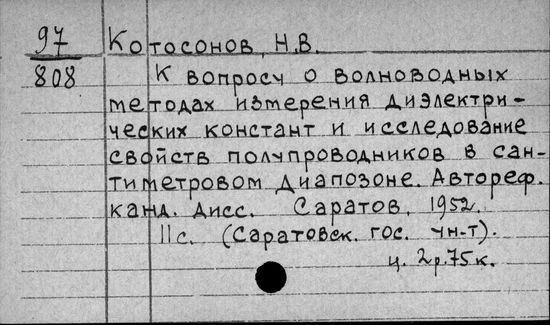 97 Котосонов, Н.В.
808 К вопросу о волноводных
методах измерения диэлектри-
ческих констант и исследование
свойств полупроводников в сан-
тиметровом диапозоне. Автореф.
канд. дисс. Саратов, 1952.
11с. (Саратовск. гос. ун-т).
ц. 2р.75к.